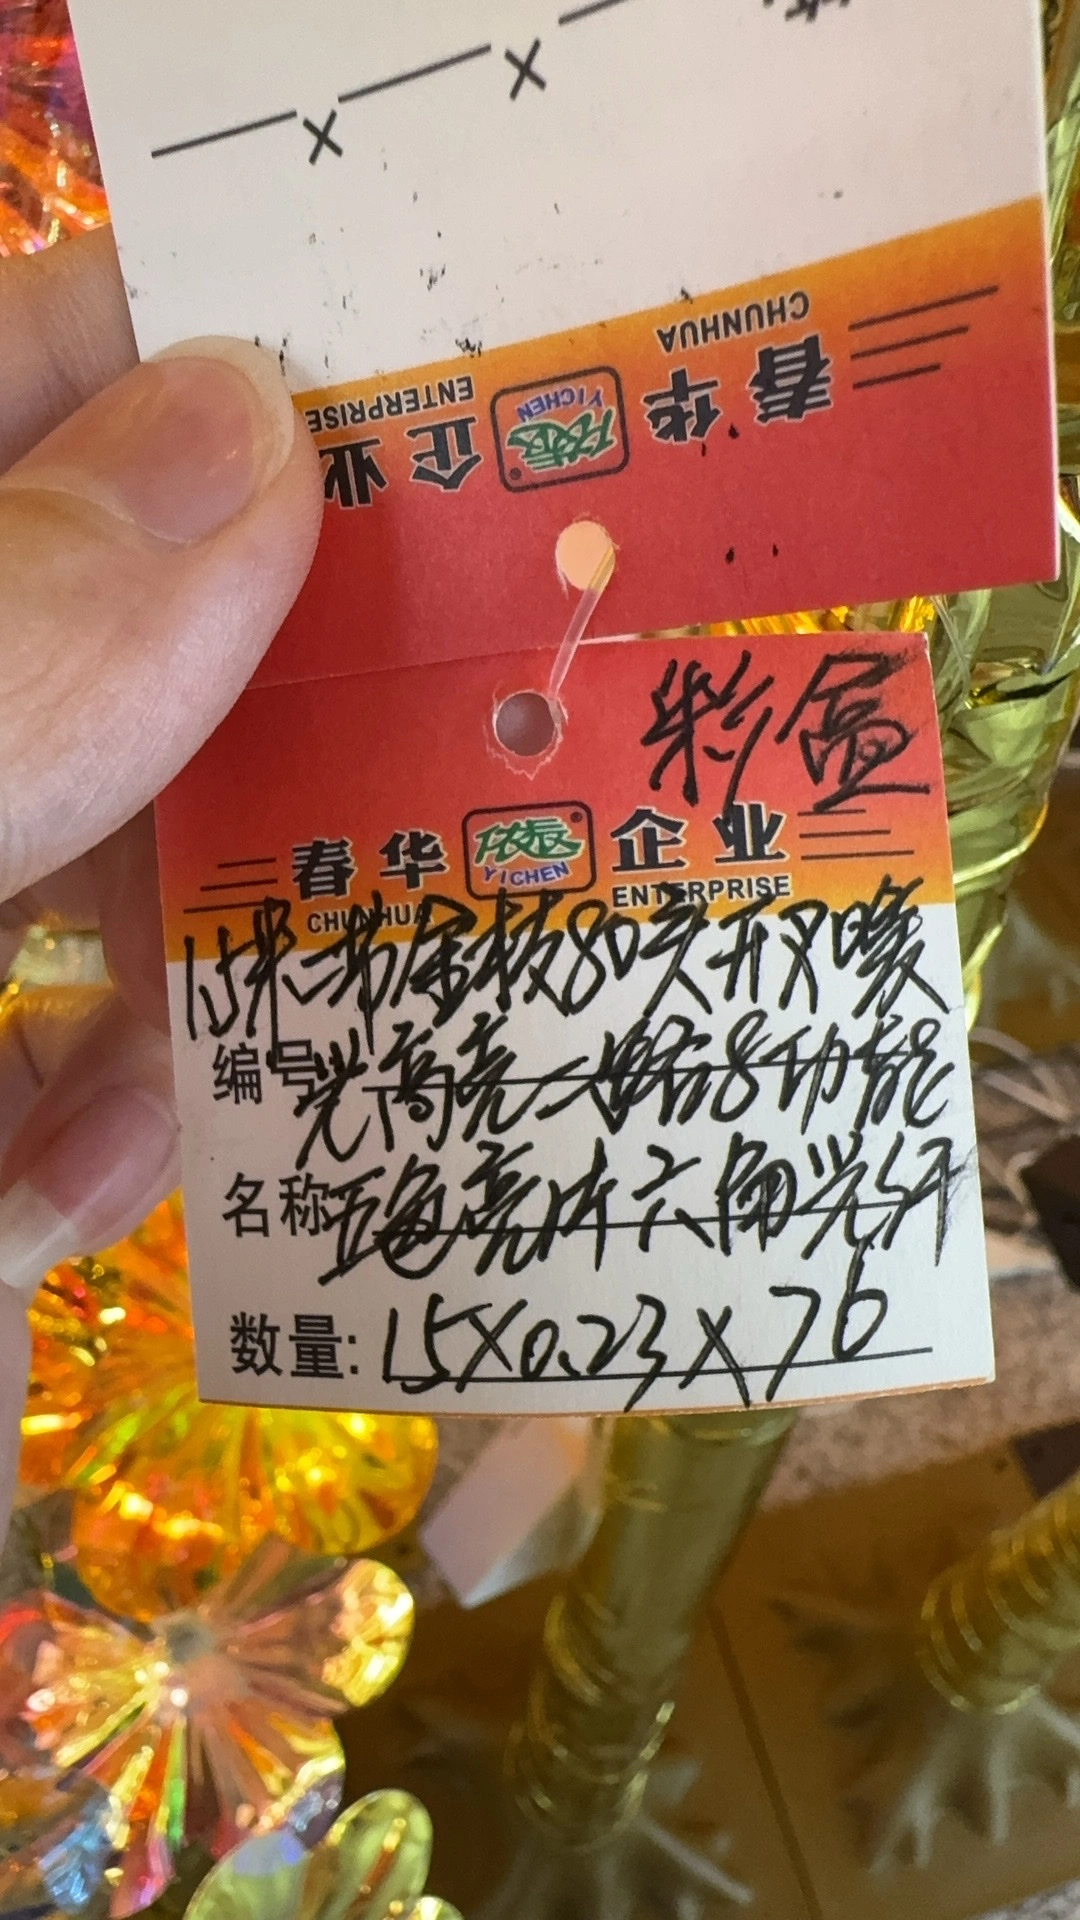 春华 依辰 YICHEN 企业
CHUNHUA ENTERPRISE
彩盒
春华 依辰 YICHEN 企业
CHUNHUA ENTERPRISE
15米二节金枝80头开叉暖
编号 光高亮二路8功能
名称 五色亮片六角光纤
数量: 15X0.23X76